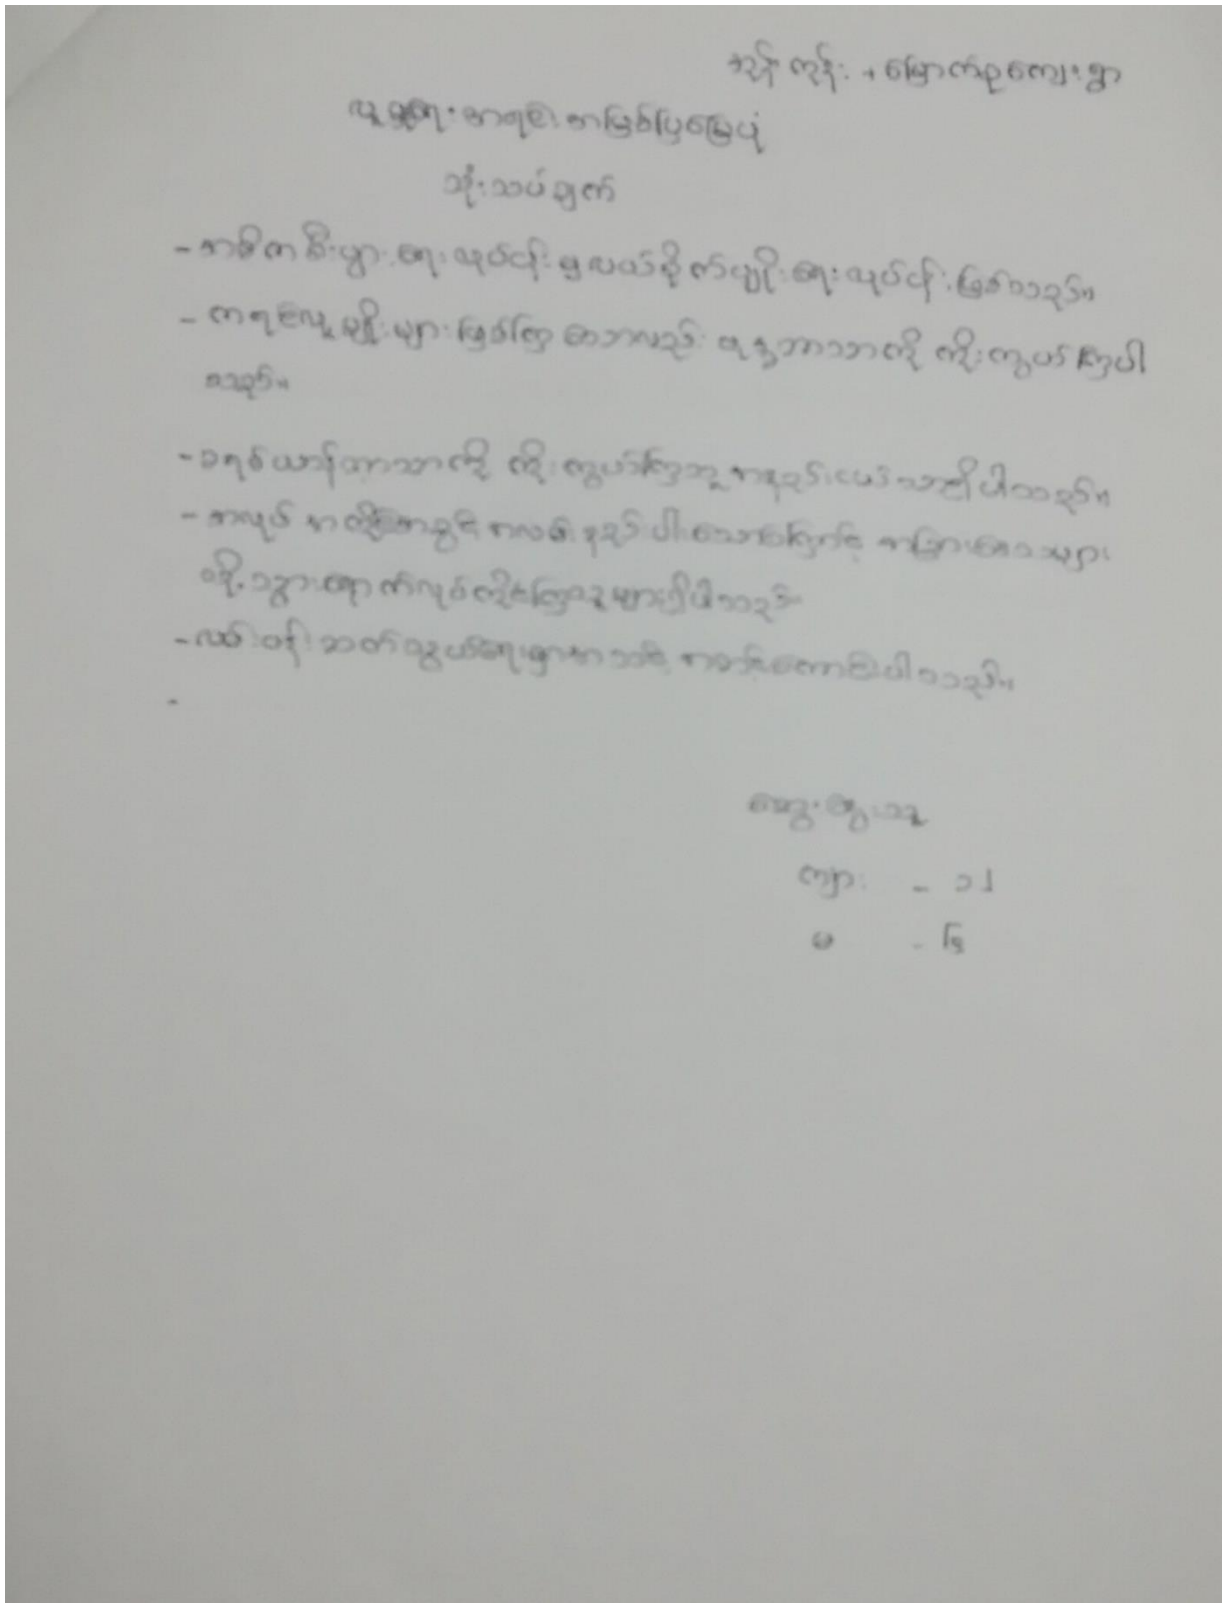 ကုန်း + မြောက်စုကျေးရွာ
လူမှုရေး အရင်းအမြစ်ပြမြေပုံ
သုံးသပ်ချက်
- အဓိကစီးပွားရေးလုပ်ငန်းမှ လယ်စိုက်ပျိုးရေးလုပ်ငန်းဖြစ်သည်။
- ကရင်လူမျိုးများဖြစ်ကြသော်လည်း ဗုဒ္ဓဘာသာကို ကိုးကွယ်ကြပါ
သည်။
- ခရစ်ယာန်ဘာသာကို ကိုးကွယ်ကြသူ အနည်းငယ်သာရှိပါသည်။
- အလုပ်အကိုင်အခွင့်အလမ်းနည်းပါးသောကြောင့် အခြားဒေသများ
သို့ သွားရောက်လုပ်ကိုင်ကြသူများရှိပါသည်။
- လမ်းပန်းဆက်သွယ်ရေးမှာအသင့်အတင့်ကောင်းပါသည်။
-
ဆွေးနွေးသူ
ကျား - ၁၂
မ -